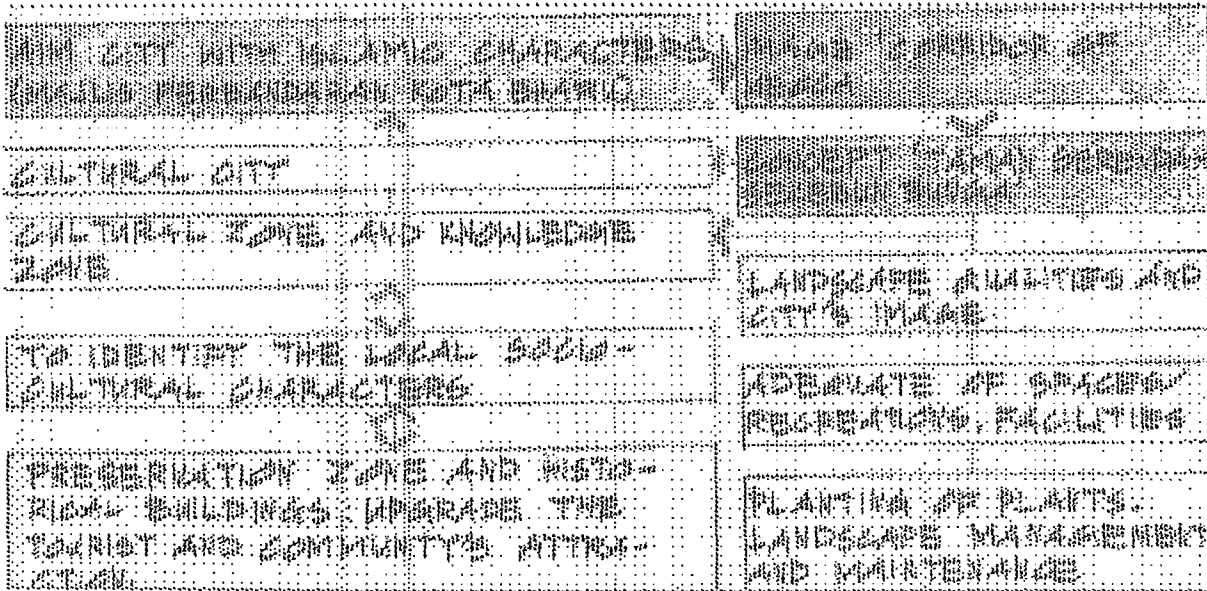 CITY WITH ISLAMIC CHARACTERS
CULTURAL CITY
CULTURAL ZONE AND KNOWLEDGE
ZONE
TO IDENTIFY THE LOCAL SOCIO-
CULTURAL CHARACTERS
PRESERVATION ZONE AND HISTO-
RICAL BUILDINGS. UPGRADE THE
TOURIST AND COMMUNITY'S ATTRA-
CTION.
OF
LANDSCAPE QUALITIES AND
CITY'S IMAGE
ADEQUATE OF SPACES/
RECREATIONS, FACILITIES
PLANTING OF PLANTS.
LANDSCAPE MANAGEMENT
AND MAINTENANCE